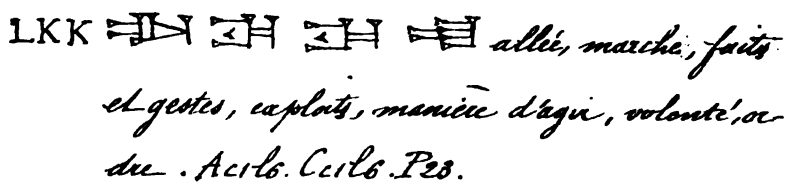 LKK allée, marche, faits
et gestes, exploits, manière d'agir, volonté, or-
dre. Ac1l6. Cc1l6. P28.